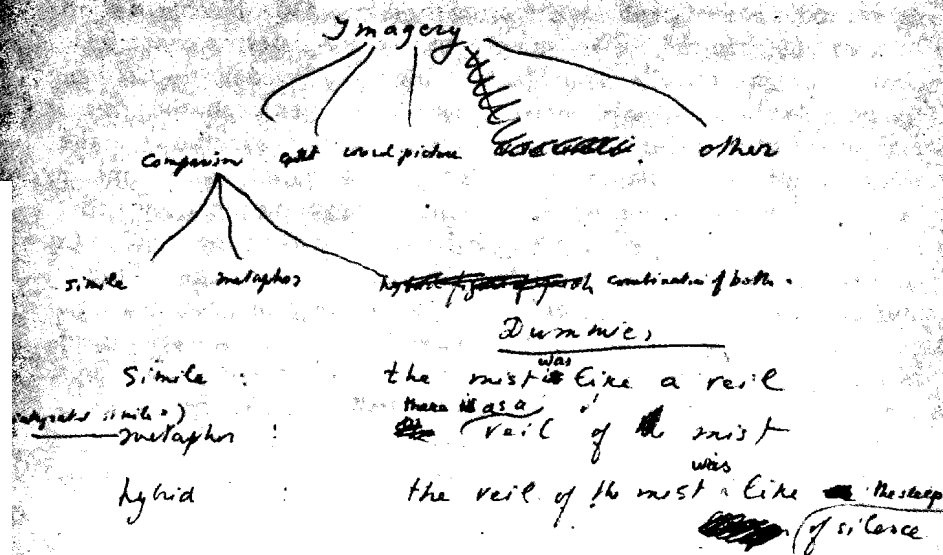 Imagery
comparison word picture other
simile metaphor combination of both.
Dummies
Simile : the mist was like a veil
there was a
metaphor : veil of mist
hybrid : the veil of the mist was like the sleep
of silence